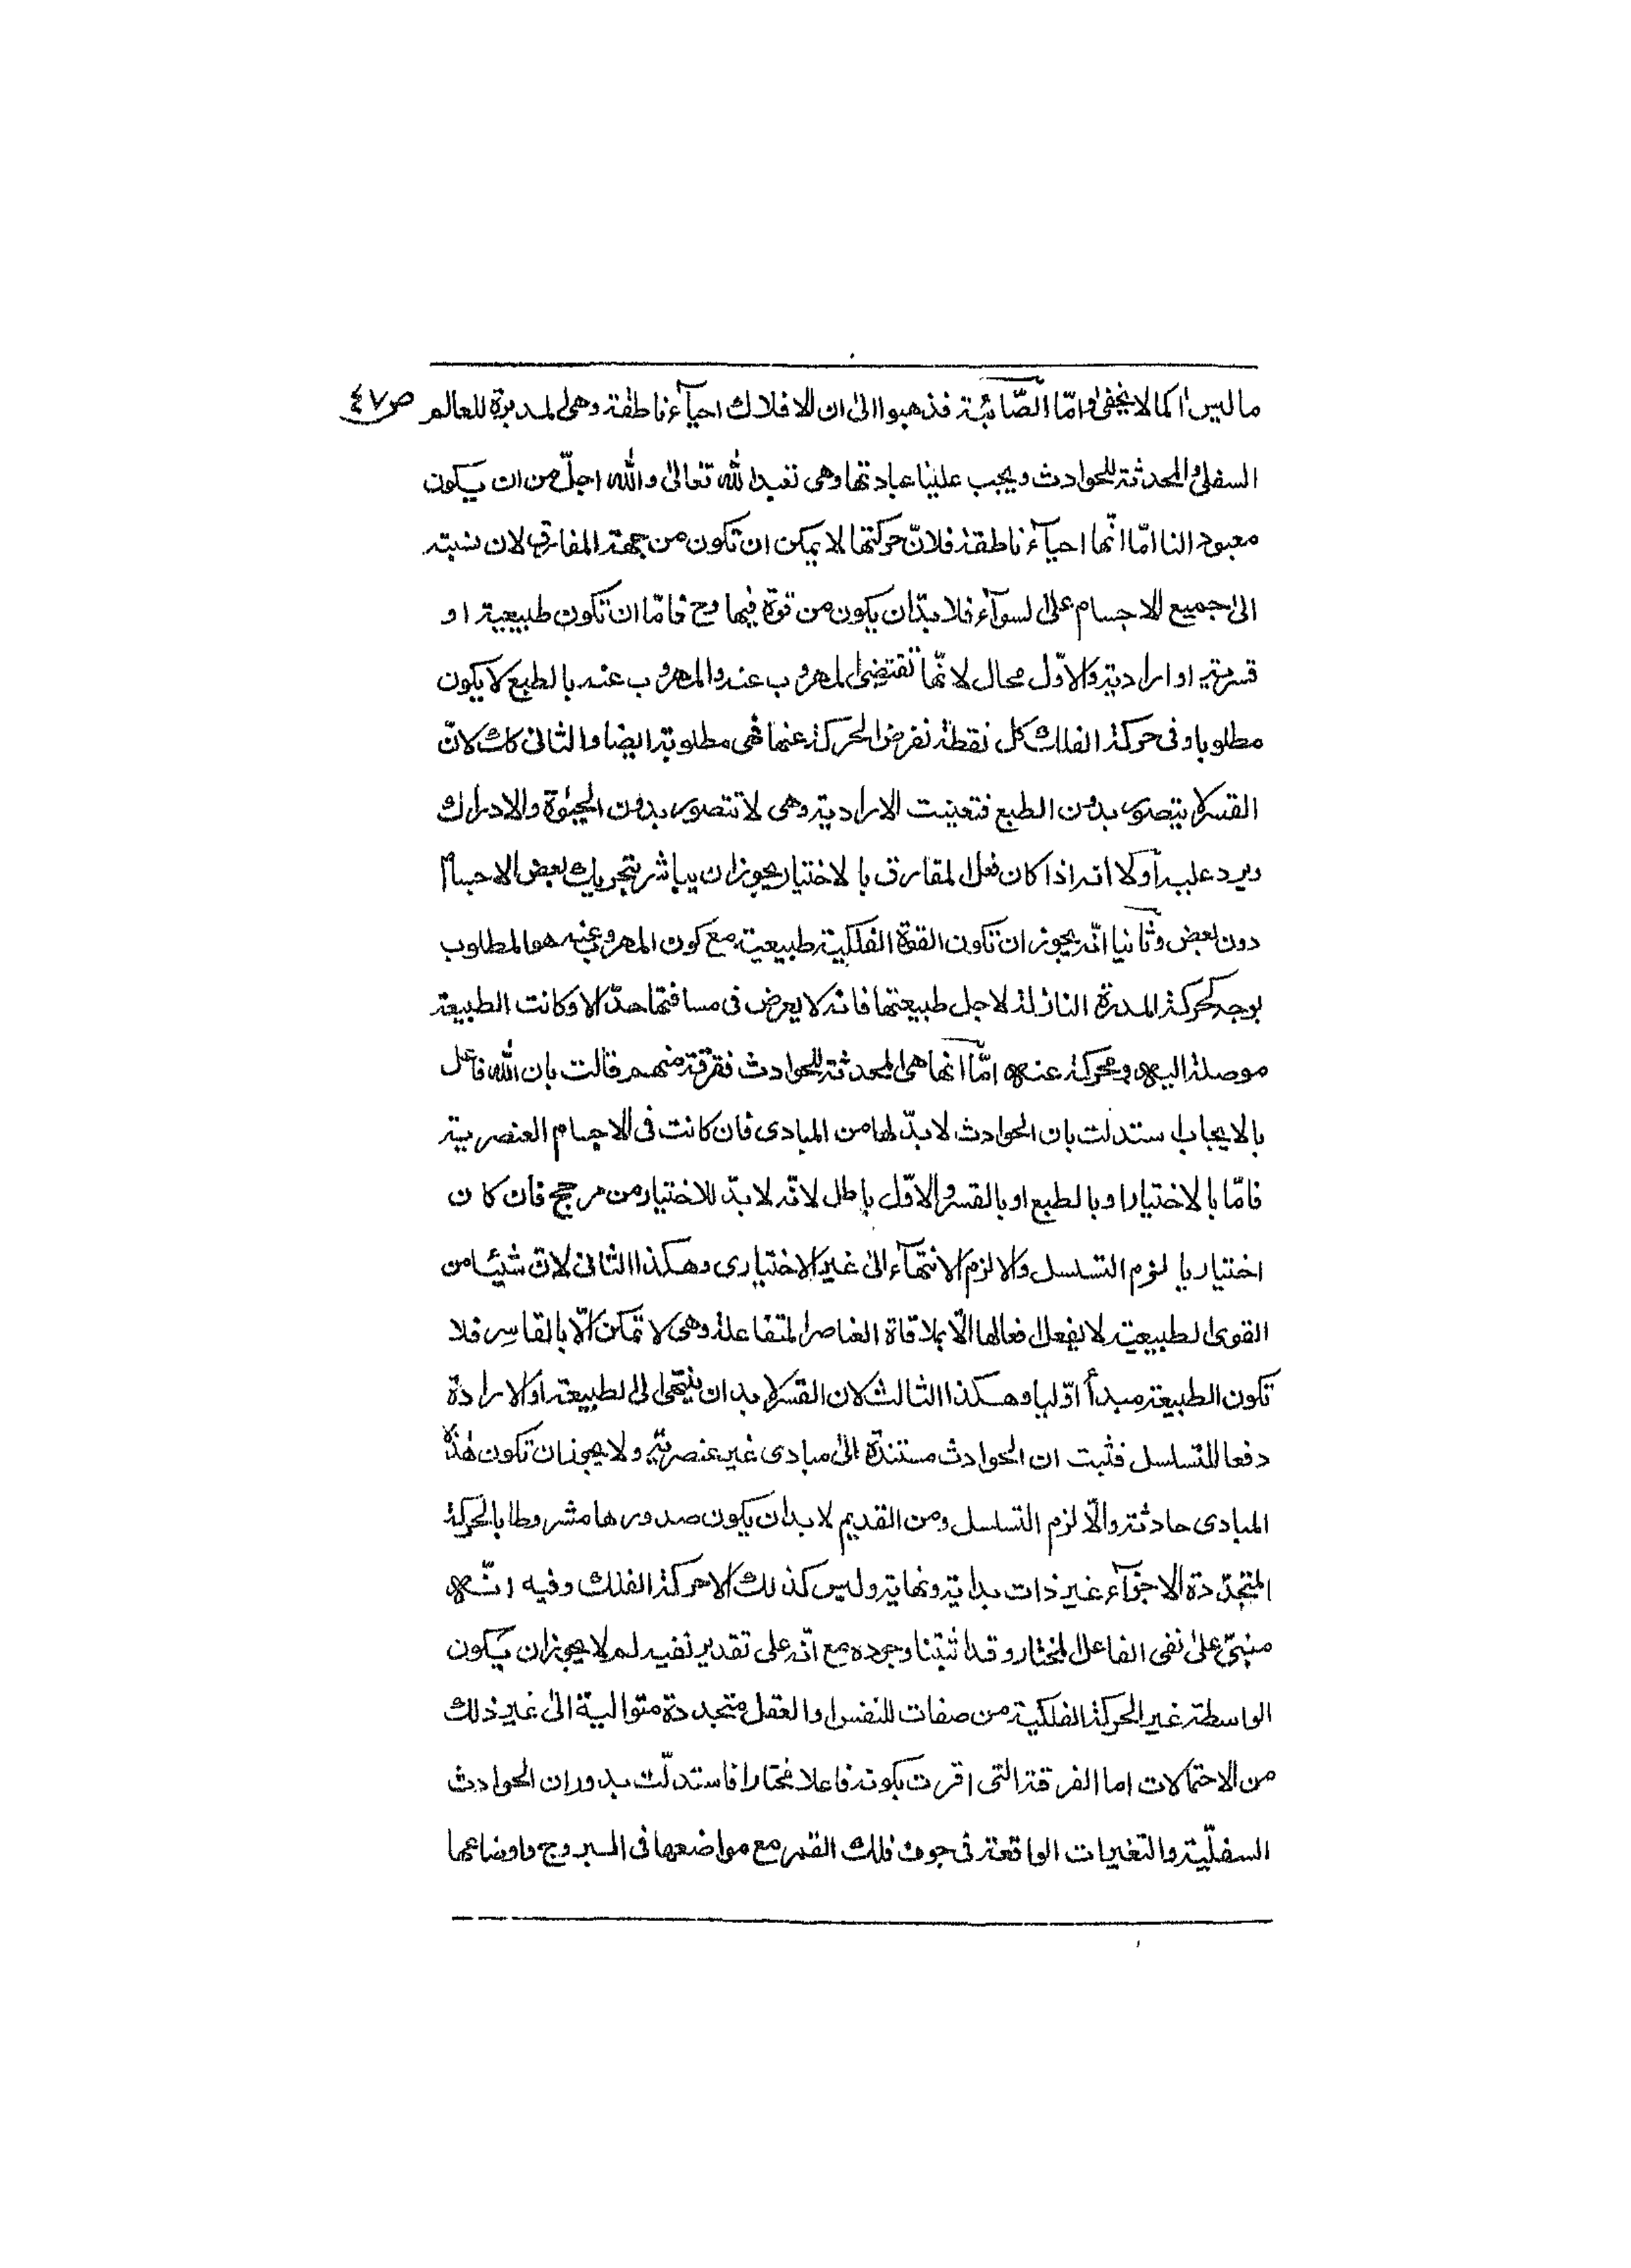 ما ليس اكمالا يخفى وامّا الصّائبة فذهبوا الى ان الافلاك احيآء ناطقة وهى المدبرة للعالم ص٤٧
السفلى والمحدثة للحوادث ويجب علينا عبادتها وهى تعبد الله تعالى والله اجلّ من ان يكون
معبود النا امّا انّها احيآء ناطقة فلانّ حركتها لا يمكن ان تكون من جهة المفارق لان نسبته
الى جميع الاجسام على السوآء فلا بدّ ان يكون من قوّة فيها وح فامّا ان تكون طبيعية او
قسرية او ارادية والاوّل محال لانّها تقتضى المهروب عنه والمهروب عنه بالطبع لا يكون
مطلوبا وفى حركة الفلك كل نقطة نفرض الحركة عنها فهى مطلوبة ايضا والثانى كك لانّ
القسر لا يتصور بدون الطبع فتعينت الارادية وهى لا تتصور بدون الحيٰوة والادراك
ويرد عليه اولا انه اذا كان فعل المفارق بالاختيار يجوز ان يباشر بتحريك بعض الاجسام
دون بعض وثانيا انّه يجوز ان تكون القوة الفلكية طبيعية مع كون المهروب عنه هو المطلوب
بوجه كحركة المدرة النازلة لاجل طبيعتها فانه لا يعرض فى مسافتها حدّ الا وكانت الطبيعة
موصلة اليه ومحركة عنه امّا انها هى المحدثة للحوادث ففرقة منهم قالت بان الله فاعل
بالايجاب استدلت بان الحوادث لا بدّ لها من المبادى فان كانت فى الاجسام العنصرية
فامّا بالاختيار او بالطبع او بالقسر والاوّل باطل لانّه لا بدّ للاختيار من مرجح فان كان
اختياريا لزم التسلسل والا لزم الانتهآء الى غير الاختيارى وهكذا الثانى لان شيئا من
القوى الطبيعية لا يفعل افعالها الّا بملاقاة العناصر المتفاعلة وهى لا تمكن الّا بالقاسِر فلا
تكون الطبيعة مبدأ اوّليا وهكذا الثالث لان القسر لا بد ان ينتهى الى الطبيعة او الارادة
دفعا للتسلسل فثبت ان الحوادث مستندة الى مبادى غير عنصرية ولا يجوز ان تكون هٰذه
المبادى حادثة والّا لزم التسلسل ومن القديم لا بد ان يكون صدورها مشروطا بالحركة
المتجدّدة الاجزآء غير ذات بداية ونهاية وليس كذلك الا حركة الفلك وفيه انّه
مبنىّ على نفى الفاعل المختار وقد اثبتنا وجوده مع انّه على تقدير نفيه لم لا يجوز ان يكون
الواسطة غير الحركة الفلكية من صفات للنفس او العقل متجددة متوالية الى غير ذلك
من الاحتمالات اما الفرقة التى اقرت بكونه فاعلا مختارا فاستدلّت بدوران الحوادث
السفليّة والتغيرات الواقعة فى جوف فلك القمر مع مواضعها فى البروج واوضاعها